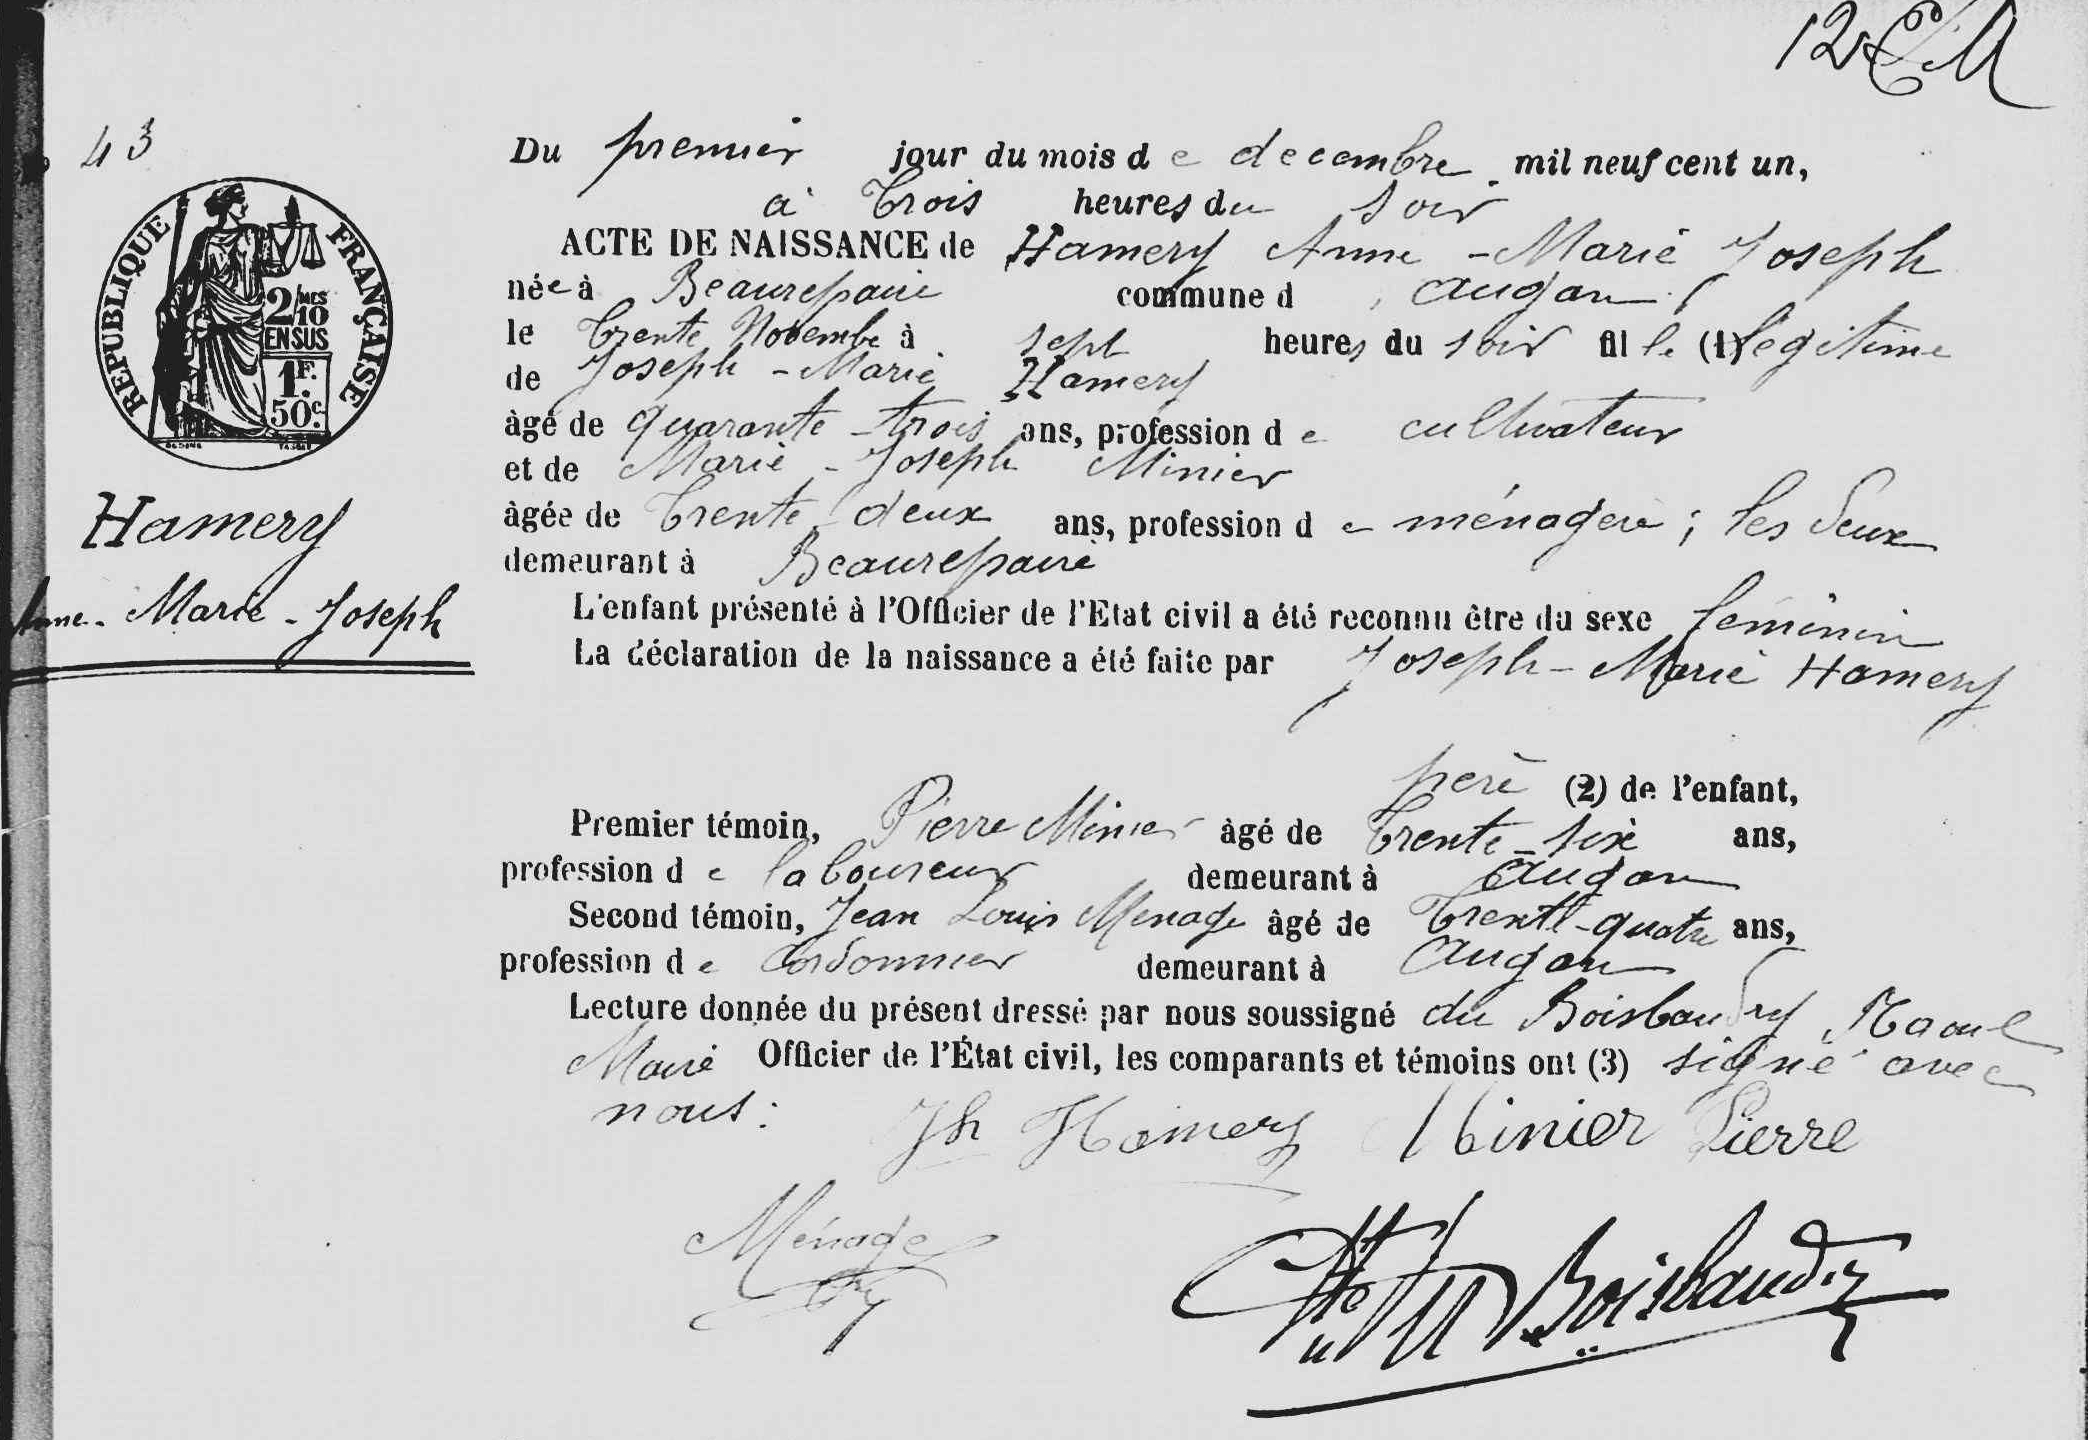 43
RÉPUBLIQUE FRANÇAISE
2/MES
10
EN SUS
1F.
50c.
Hamery
Anne - Marie - Joseph
Du premier jour du mois de decembre mil neuf cent un,
à trois heures du soir
ACTE DE NAISSANCE de Hamery Anne - Marie Joseph
née à Beaurepaire commune d Augan
le trente Novembre à sept heures du soir fille (1) légitime
de Joseph - Marie Hamery
âgé de quarante - trois ans, profession de cultivateur
et de Marie - Joseph Minier
âgée de trente deux ans, profession de ménagère ; les deux
demeurant à Beaurepaire
L'enfant présenté à l'Officier de l'Etat civil a été reconnu être du sexe féminin
La déclaration de la naissance a été faite par Joseph - Marie Hamery
père (2) de l'enfant,
Premier témoin, Pierre Minier âgé de trente - six ans,
profession de laboureur demeurant à Augan
Second témoin, Jean Louis Menage âgé de trente - quatre ans,
profession de cordonnier demeurant à Augan
Lecture donnée du présent dressé par nous soussigné du Boisbaudry Raoul
Maire Officier de l'État civil, les comparants et témoins ont (3) signé avec
nous :
Jh Hamery Minier Pierre
Ménage
Boisbaudry